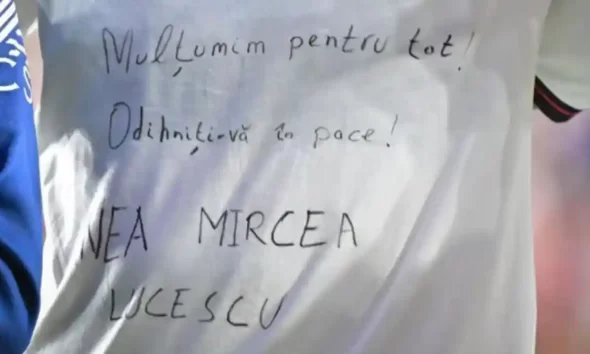 Mulțumim pentru tot!
Odihniți-vă în pace!
NEA MIRCEA
LUCESCU